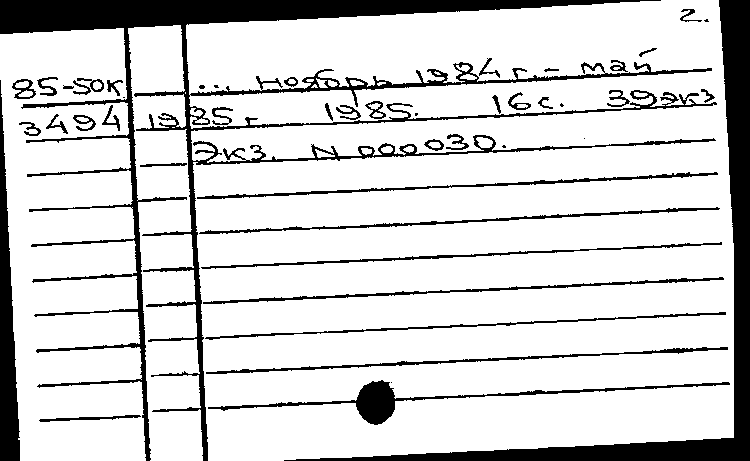 2.
85-50к ... ноябрь 1984 г. - май
3494 1985 г 1985. 16 с. 39 экз
Экз. N 000030.